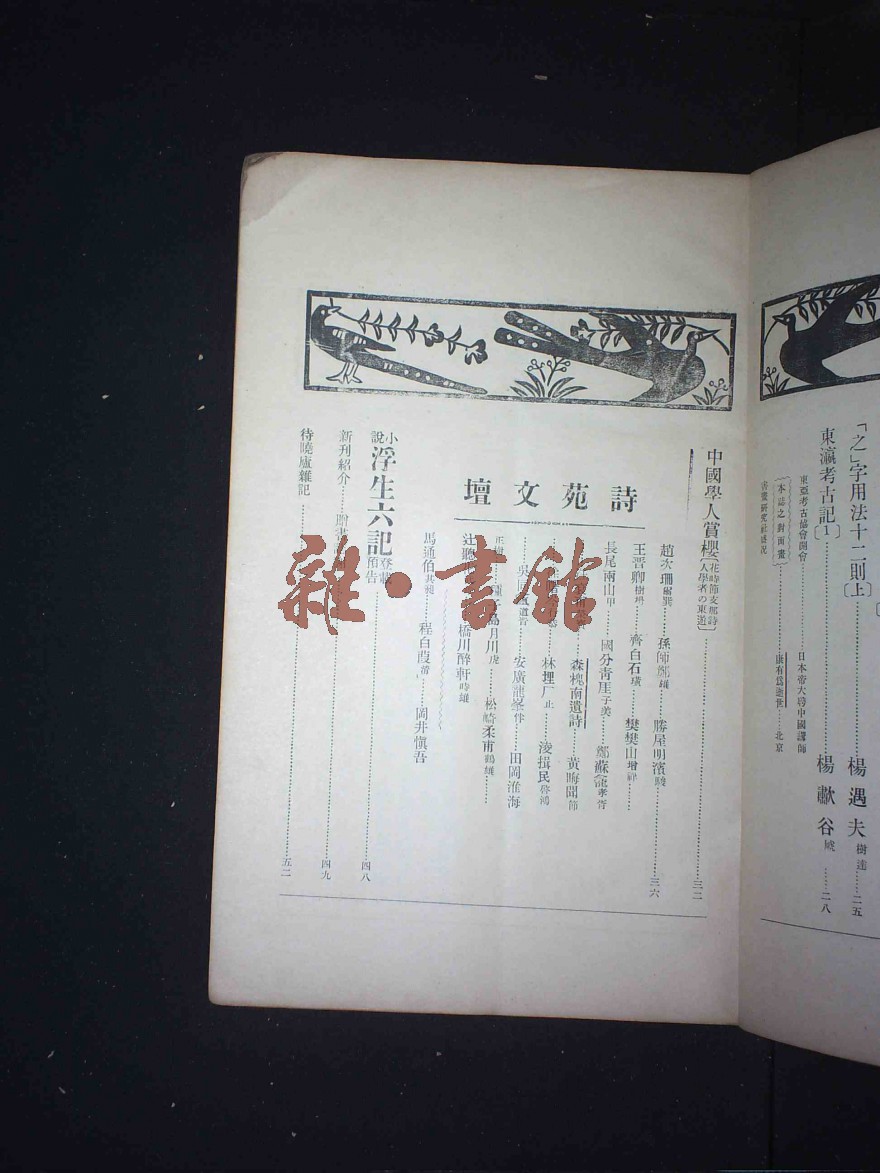 「之」字用法十二則〔上〕……楊遇夫樹達……二五
東瀛考古記〔1〕
楊歗谷……二八
東亞考古協會開會……日本帝大聘中國講師
〔本誌之封面畫〕……康有爲逝世……北京
書畫研究社盛况
中國學人賞櫻〔花時節支那詩人學者の東遊〕……三二
詩苑文壇
趙次珊爾巽……孫師鄭雄……勝屋明濱駿……三六
王晋卿樹枏……齊白石璜……樊樊山增祥
長尾雨山甲……國分青厓子美……鄭蘇龕孝胥
森槐南遺詩……黃晦聞節
林埋厂止……淩揖民啓鴻
安廣龍峯伴……田岡淮海
月川虎……松崎柔甫鶴雄
橋川醉軒時雄
馬通伯其昶……程白葭淯……岡井愼吾
小說 浮生六記 登載預告……四八
新刊紹介……四九
待曉廬雜記……五二
雜·書館